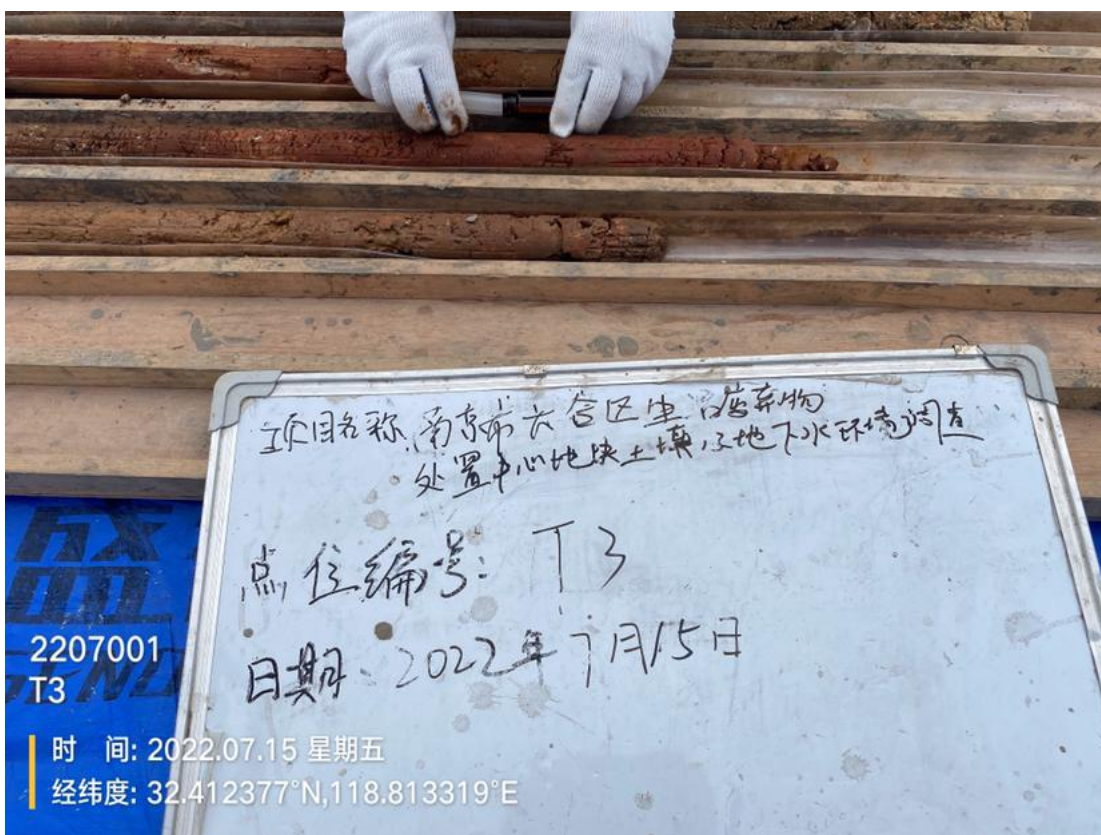 项目名称:南京市六合区生活废弃物
处置中心地块土壤及地下水环境调查
点位编号: T3
日期: 2022年7月15日
2207001
T3
时 间: 2022.07.15 星期五
经纬度: 32.412377°N,118.813319°E